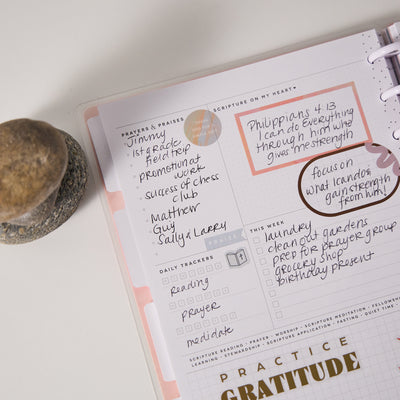 PRAYERS & PRAISES
Jimmy
1st grade
field trip
promotion at
work
success of chess
club
Matthew
Guy
Sally & Larry
PRAISE
SCRIPTURE ON MY HEART
Philippians 4:13
I can do Everything
through him who
gives me strength
focus on
what I can do &
gain strength
from him!
DAILY TRACKERS
reading
prayer
medidate
THIS WEEK
laundry
clean out gardens
prep for prayer group
grocery shop
birthday present
SCRIPTURE READING • PRAYER • WORSHIP • SCRIPTURE MEDITATION • FELLOWSHIP
LEARNING • STEWARDSHIP • SCRIPTURE APPLICATION • FASTING • QUIET TIME
PRACTICE
GRATITUDE